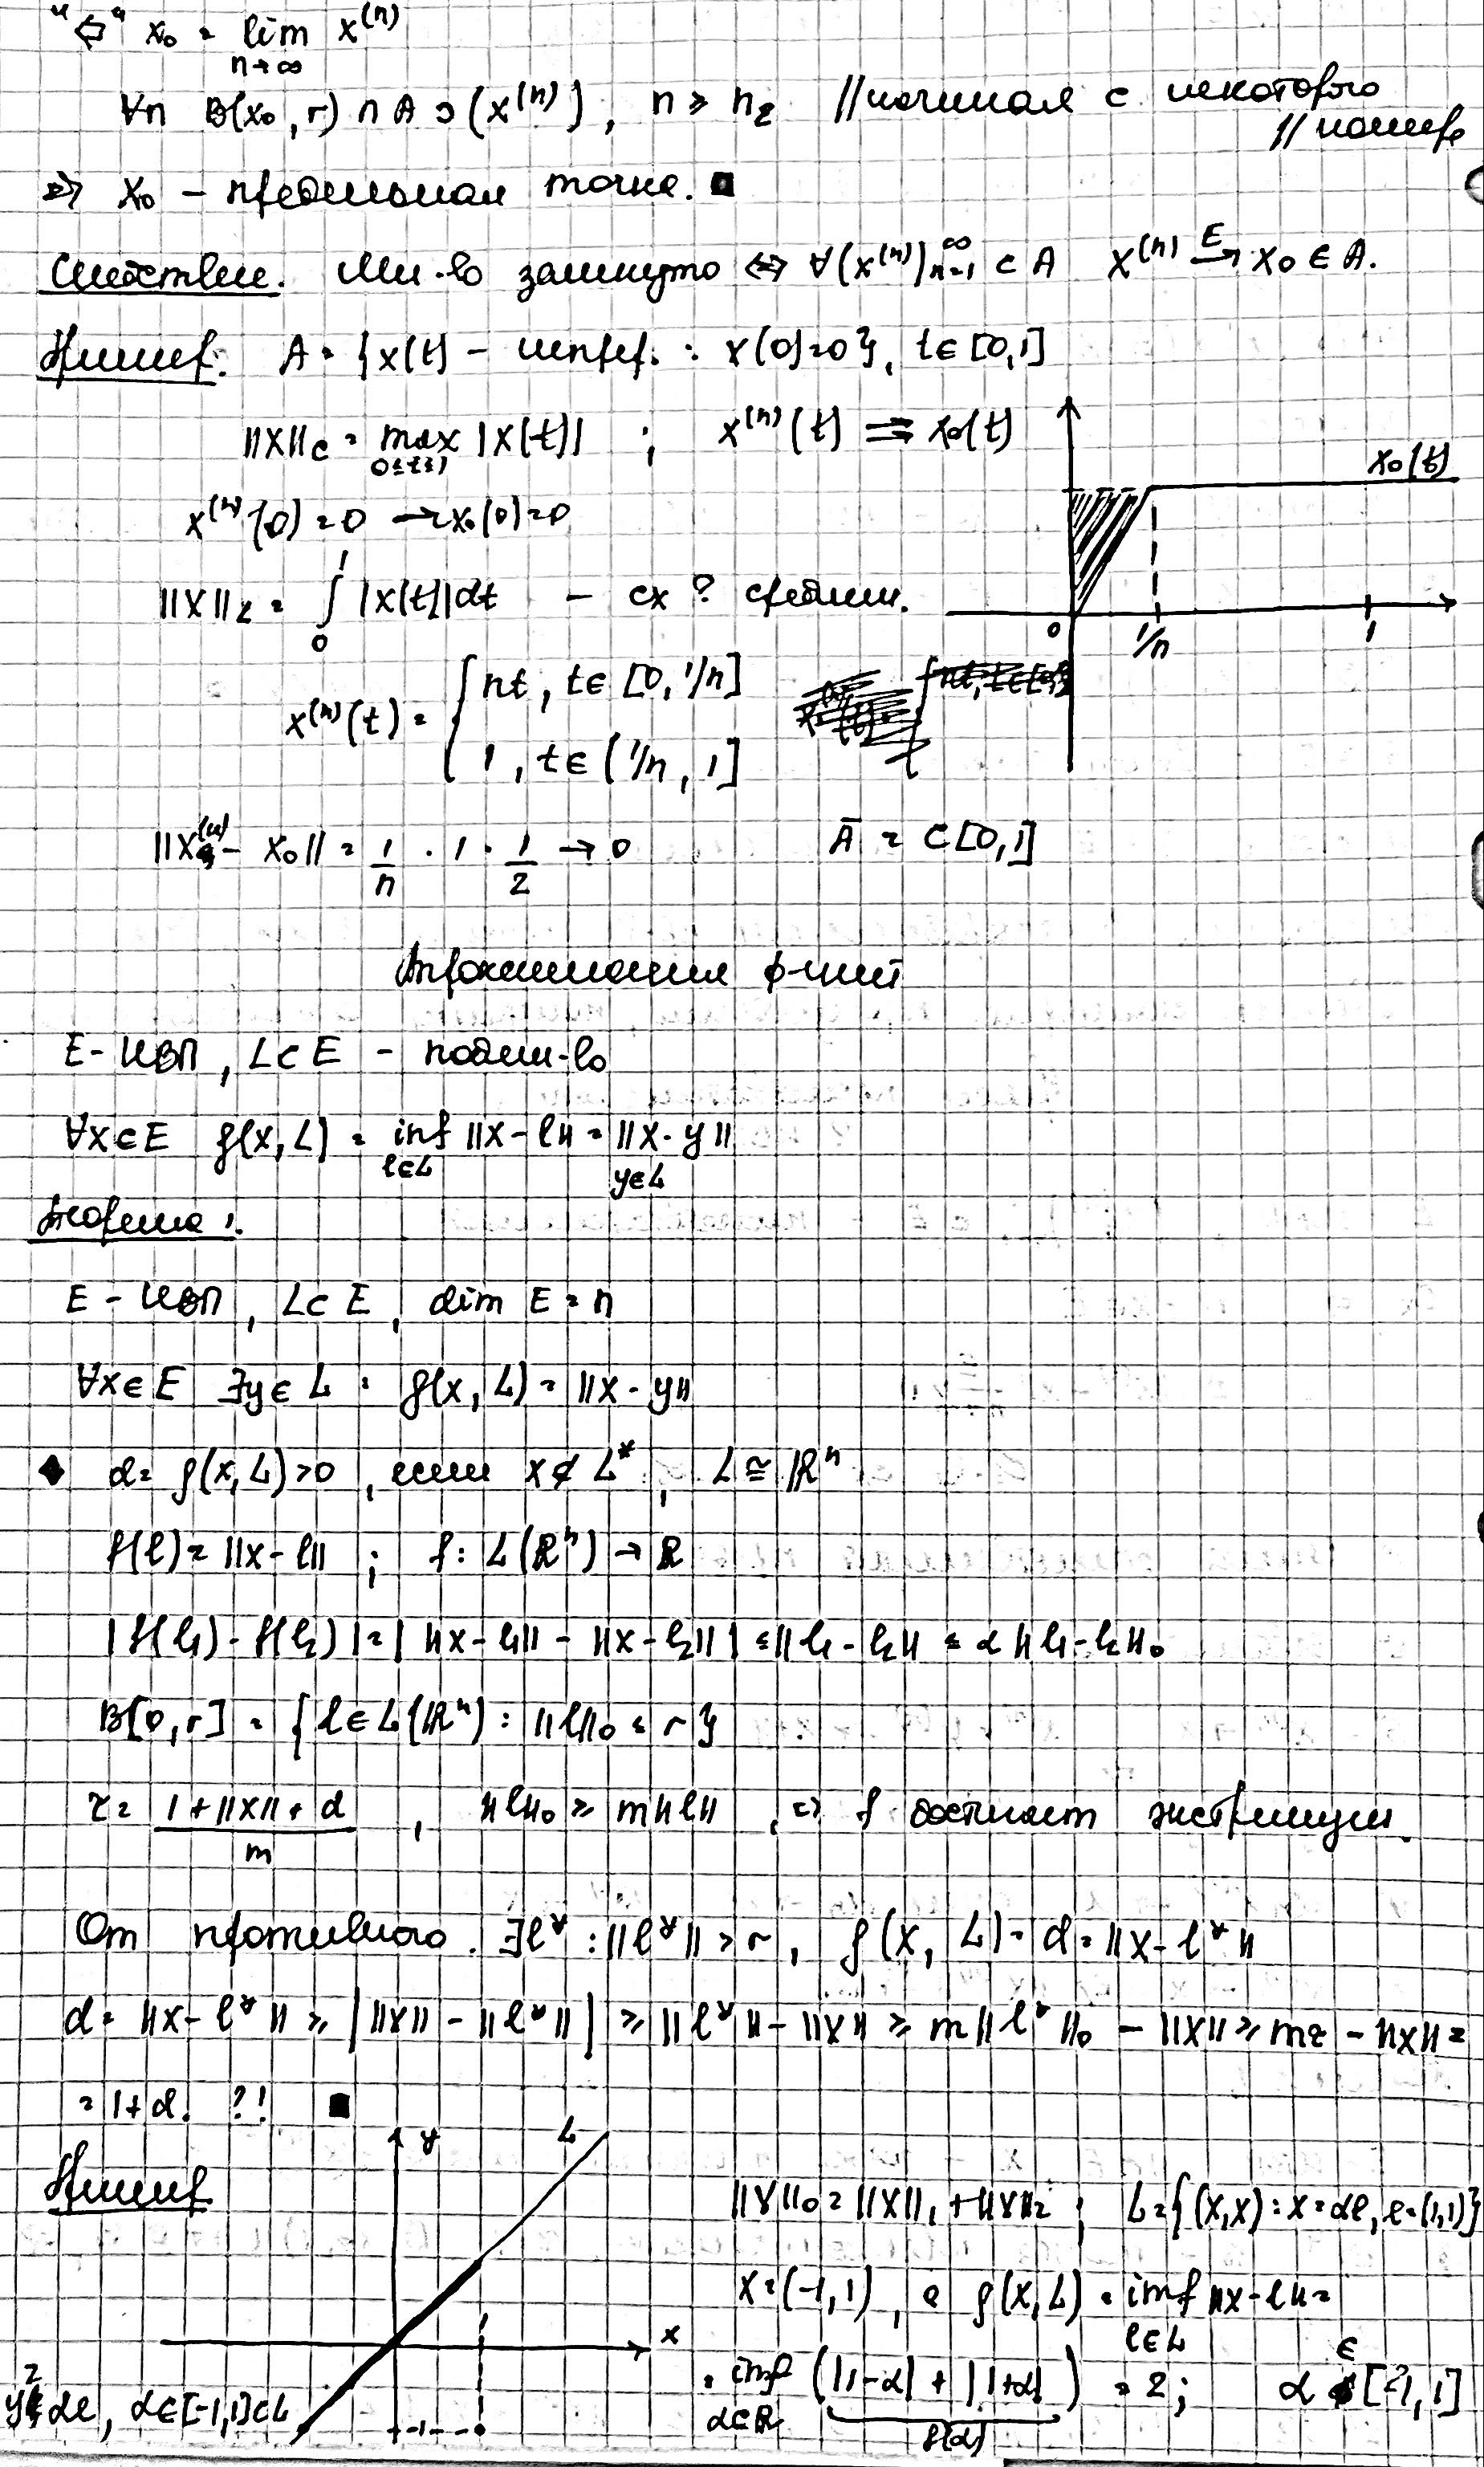 "⇔" x₀ = lim x⁽ⁿ⁾
n→∞
∀n B(x₀, r) ∩ A ∋ (x⁽ⁿ⁾), n ≥ n₂ //начиная с некоторого
//номера
⇒ x₀ – предельная точка. ■
Следствие. Мн-во замкнуто ⇔ ∀(x⁽ⁿ⁾)ₙ₌₁^∞ ⊂ A x⁽ⁿ⁾ →^E x₀ ∈ A.
Пример: A = {x(t) – непрер. : x(0)=0}, t ∈ [0,1]
||x||_C = max |x(t)| ; x⁽ⁿ⁾(t) ⇉ x₀(t)
0≤t≤1
x₀(t)
x⁽ⁿ⁾(0) = 0 → x₀(0)=0
||x||_L = ∫₀¹ |x(t)|dt – сх ? средним.
0 1/n 1
x⁽ⁿ⁾(t) = { nt, t ∈ [0, 1/n]
1, t ∈ (1/n, 1]
||x⁽ⁿ⁾ - x₀|| = 1/n · 1 · 1/2 → 0 Ā = C[0,1]
Аппроксимация ф-ций
E - НВП, L ⊂ E - подмн-во
∀x ∈ E ρ(x, L) = inf ||x - l|| = ||x - y||
l∈L y∈L
Теорема 1.
E - НВП, L ⊂ E, dim E = n
∀x ∈ E ∃y ∈ L : ρ(x, L) = ||x - y||
◆ d = ρ(x, L) > 0, если x ∉ L*, L ≅ ℝⁿ
f(l) = ||x - l|| ; f: L(ℝⁿ) → ℝ
|f(l₁) - f(l₂)| = | ||x - l₁|| - ||x - l₂|| | ≤ ||l₁ - l₂|| ≤ α ||l₁ - l₂||₀
B[0, r] = {l ∈ L(ℝⁿ) : ||l||₀ ≤ r}
r = (1 + ||x|| + d)/m, ||l||₀ ≥ m||l||, ⇒ f достигает экстремум.
От противного. ∃l* : ||l*|| > r, ρ(x, L) = d = ||x - l*||
d = ||x - l*|| ≥ | ||x|| - ||l*|| | ≥ ||l*|| - ||x|| ≥ m||l*||₀ - ||x|| ≥ mr - ||x|| =
= 1 + d. ?! ■
y L
Пример
||x||₀ = ||x||₁ + ||x||₂ ; L = {(x,x) : x = αe, e = (1,1)}
x = (-1, 1), ρ(x, L) = inf ||x - l|| =
l∈L
x
= inf (|1-α| + |1+α|) = 2; α ∈ [-1, 1]
α∈ℝ f(α)
y = αe, α ∈ [-1,1] ⊂ L